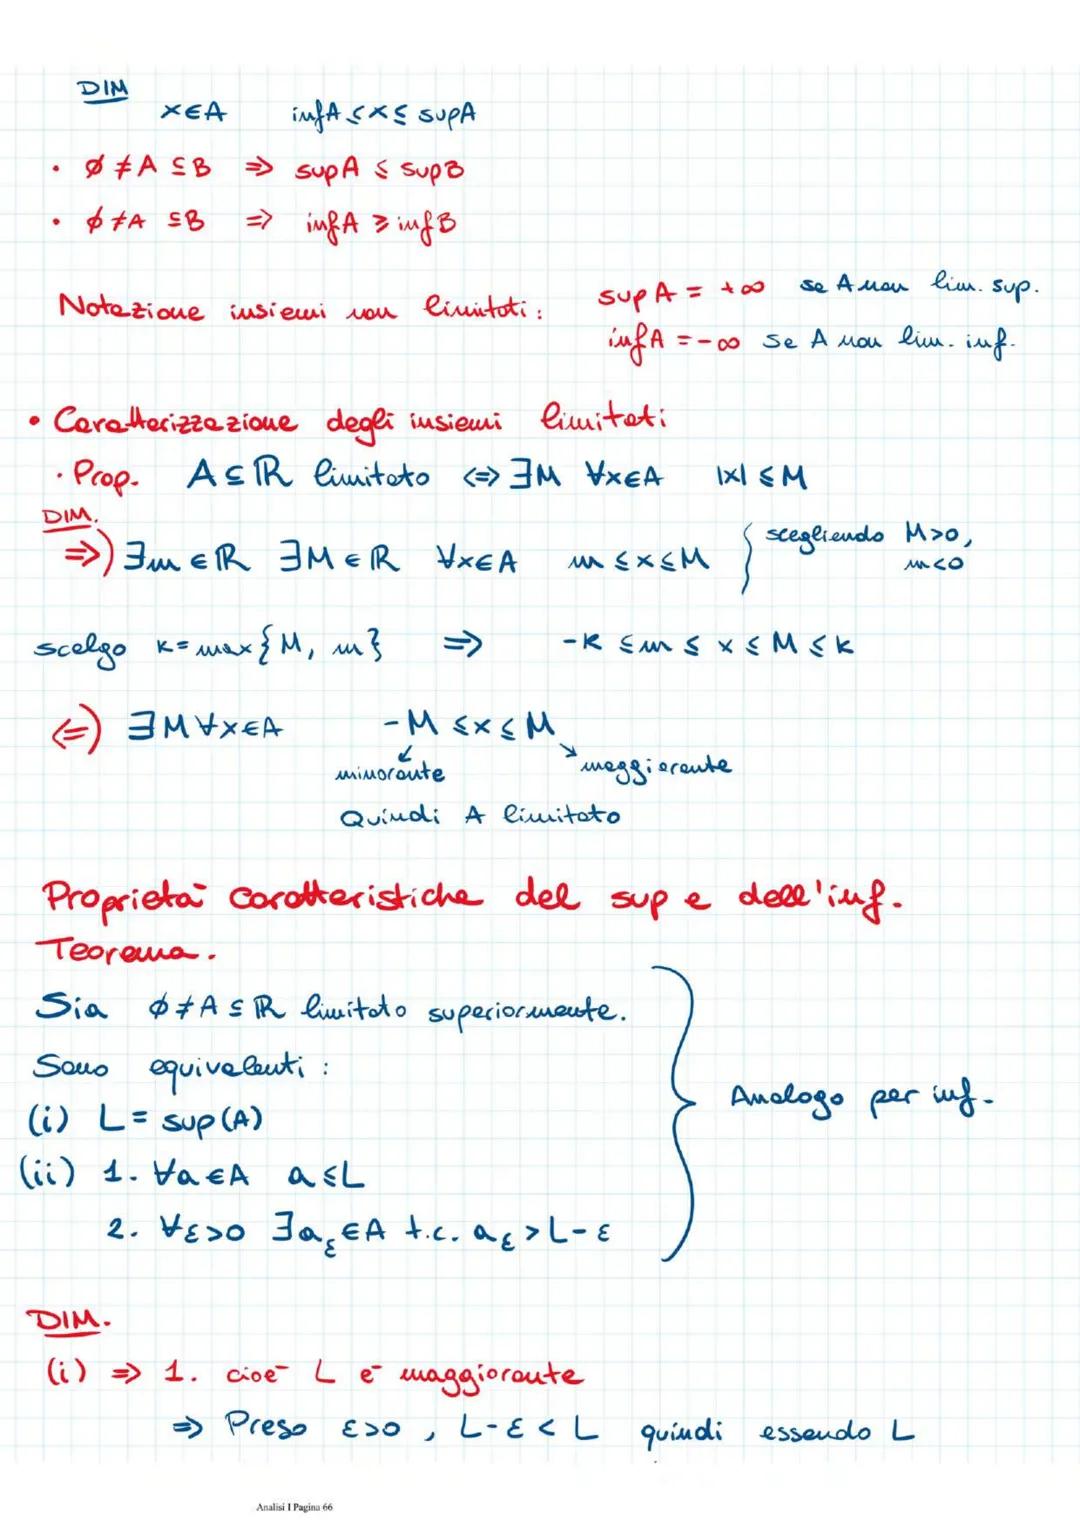 DIM
x∈A inf A ≤ x ≤ sup A
• ∅ ≠ A ⊆ B ⇒ sup A ≤ sup B
• ∅ ≠ A ⊆ B ⇒ inf A ≥ inf B
Notazione insiemi non limitati: sup A = +∞ se A non lim. sup.
inf A = -∞ se A non lim. inf.
• Caratterizzazione degli insiemi limitati
· Prop. A ⊆ ℝ limitato ⇔ ∃M ∀x∈A |x| ≤ M
DIM.
⇒) ∃m∈ℝ ∃M∈ℝ ∀x∈A m ≤ x ≤ M { scegliendo M>0,
m<0
scelgo k = max{M, m} ⇒ -k ≤ m ≤ x ≤ M ≤ k
⇐) ∃M ∀x∈A -M ≤ x ≤ M
minorante maggiorante
Quindi A limitato
Proprietà caratteristiche del sup e dell'inf.
Teorema.
Sia ∅ ≠ A ⊆ ℝ limitato superiormente.
Sono equivalenti :
(i) L = sup(A)
Analogo per inf.
(ii) 1. ∀a∈A a ≤ L
2. ∀ε>0 ∃a_ε∈A t.c. a_ε > L-ε
DIM.
(i) ⇒ 1. cioè L è maggiorante
⇒ Preso ε>0, L-ε < L quindi essendo L
Analisi I Pagina 66